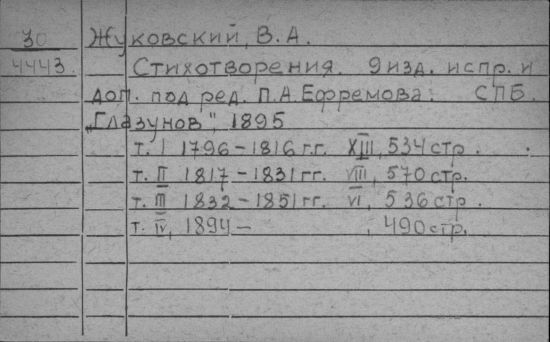 30 Жуковский, В.А.
4443. Стихотворения. 9 изд. испр. и
доп. под ред. П.А. Ефремова. СПБ.
„Глазунов", 1895
т. I 1796-1816 гг. XIII, 534 стр.
т. II 1817-1831 гг. VIII, 570 стр.
т. III 1832-1851 гг. VI, 536 стр.
т. IV, 1894- , 490 стр.